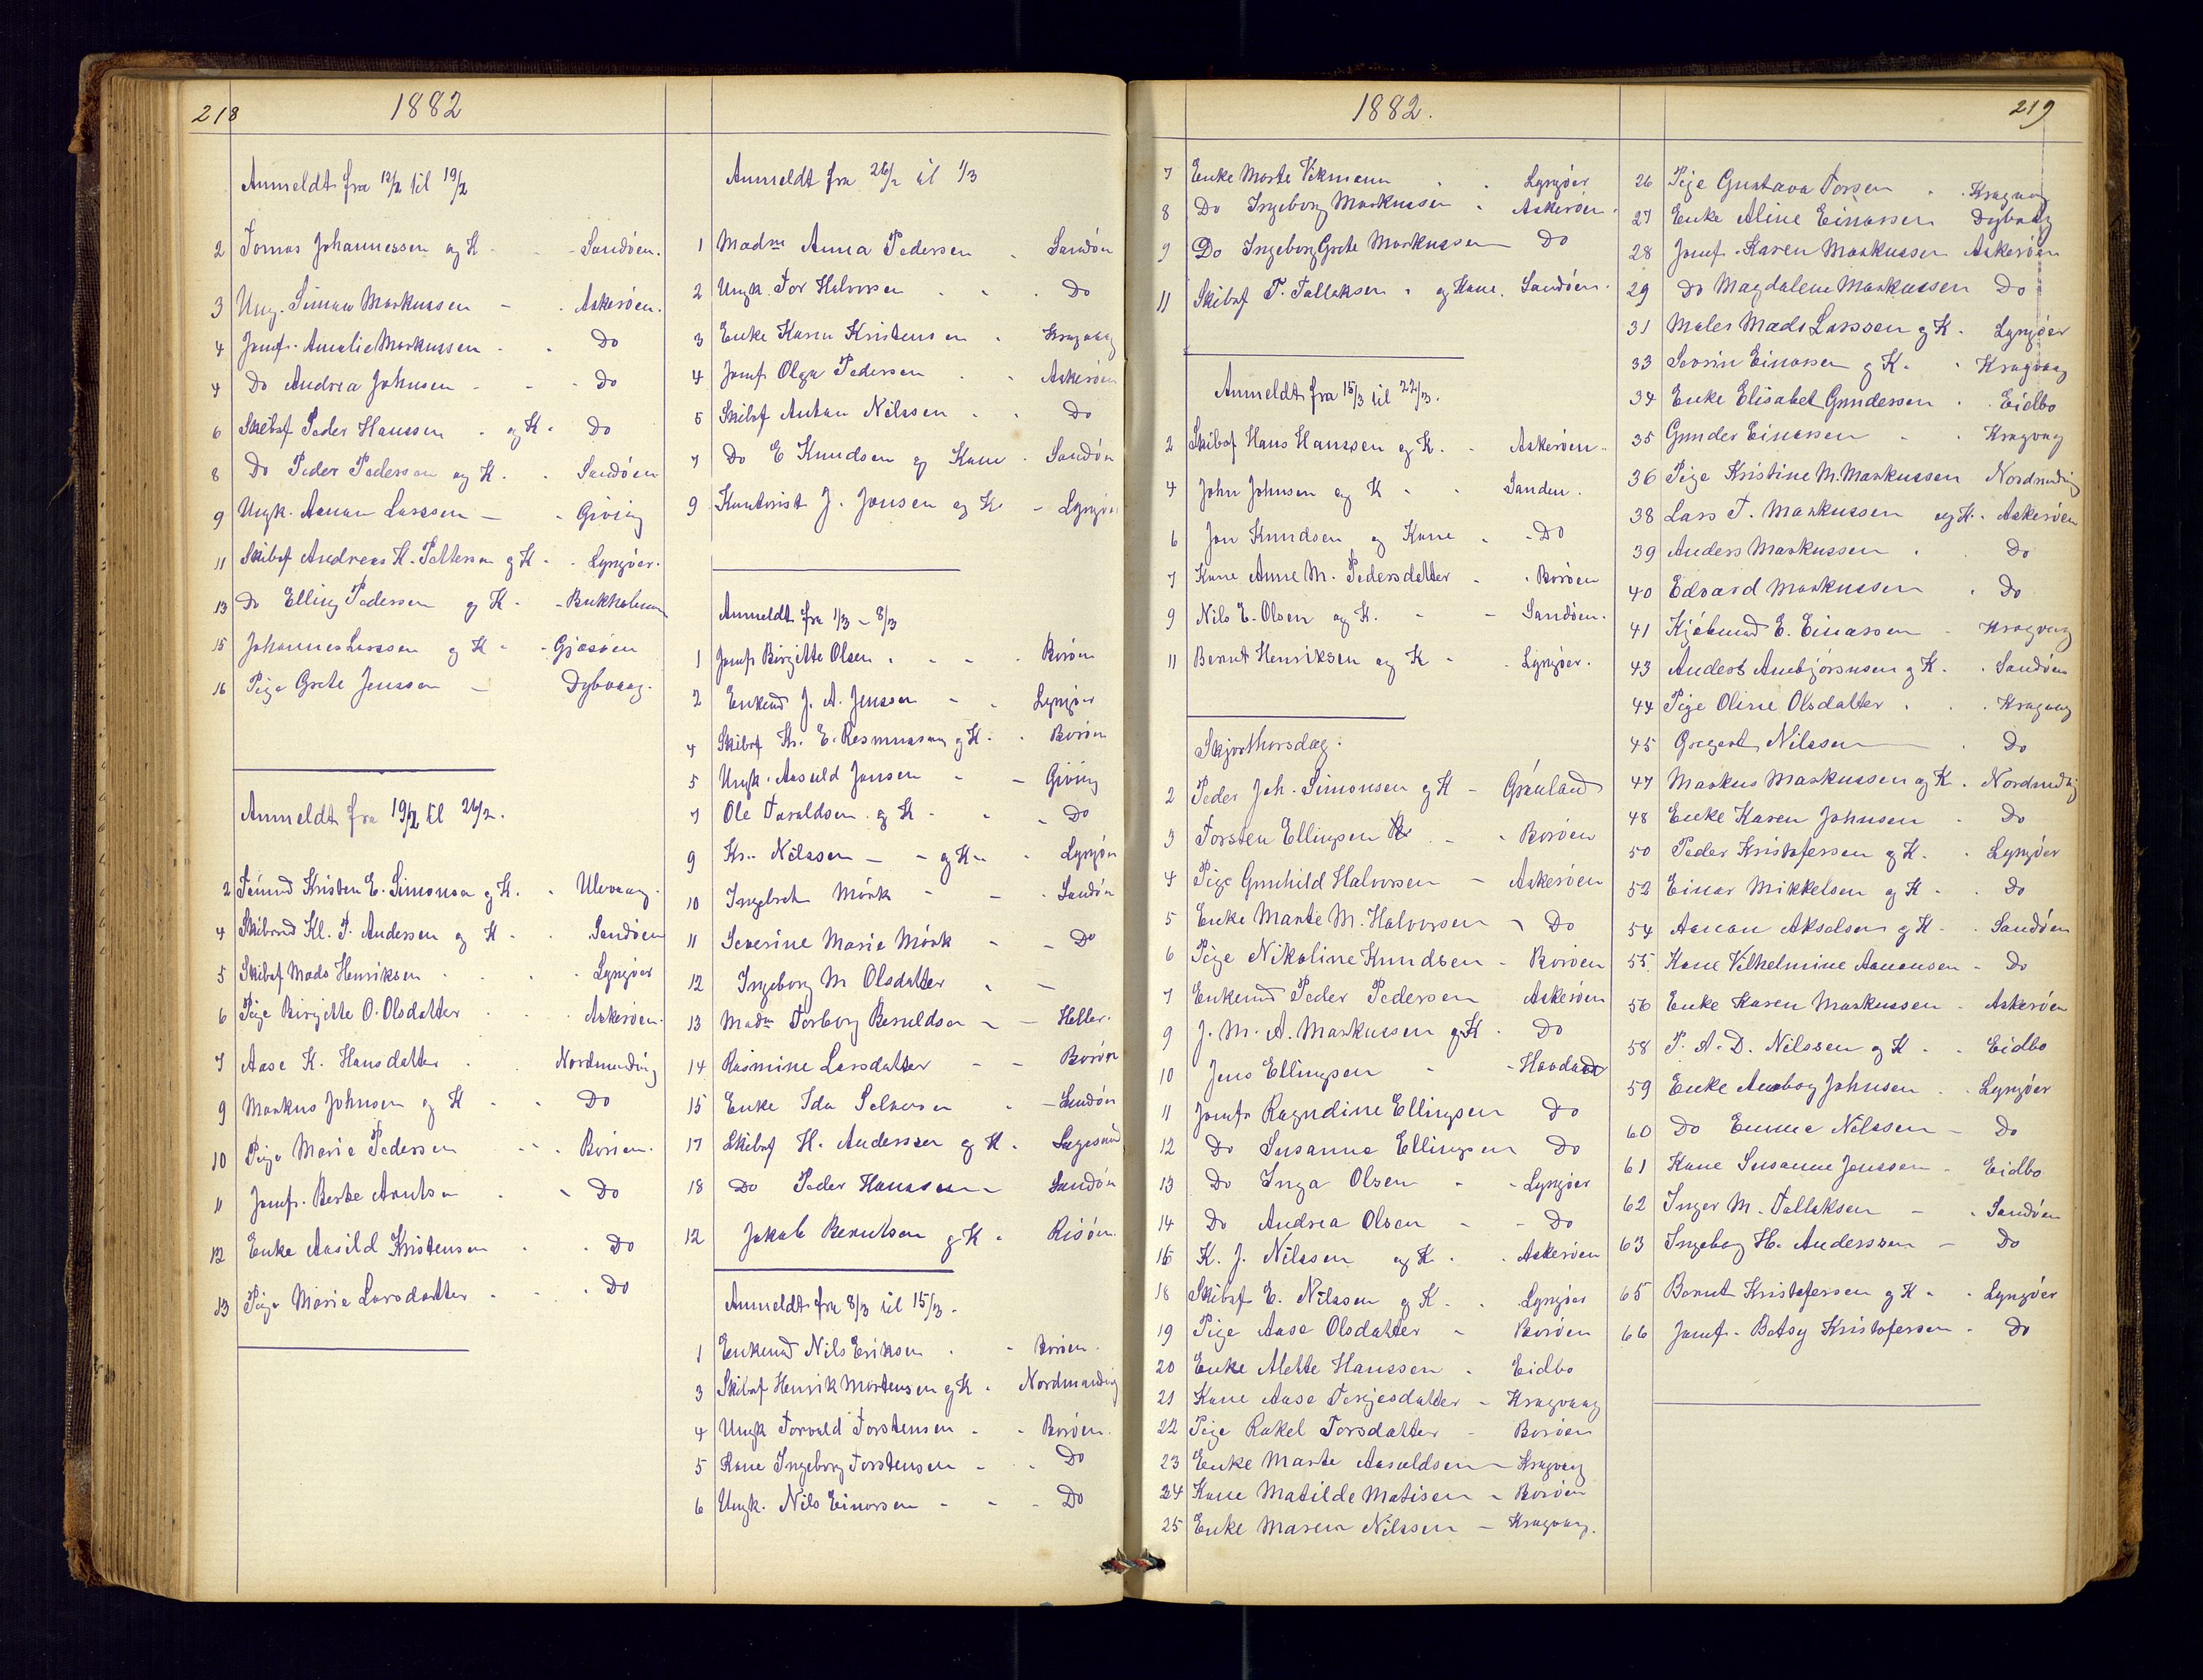 218
1882
Anmeldt fra 12/2 til 19/2
2 Tomas Johannessen og K - - Sandøen.
3 Ung. Simon Markussen - - Askerøen.
4 Jomf. Amalie Markussen - - Do
4 Do Andrea Johnsen - - - Do
6 Skibsf Peder Hanssen - og K - Do
8 Do Peder Pedersen og K. - Sandøen
9 Ungk. Aanan Larssen - - Giving
11 Skibsf Andreas K. Pettersen og K - - Lyngøer.
13 Do Elling Pedersen og K - - Bukholmen
15 Johannes Larssen og K - - Gjæsøen
16 Pige Grete Jenssen - Dybvaag.
Anmeldt fra 19/2 til 26/2.
2 Kristen E. Simonsen og K. - Ulevaag.
4 Skibsmd Kl. P. Anderssen og K - - Sandøen
5 Skibsf Mads Henriksen - - - Lyngøer
6 Pige Birgitte O. Olsdatter - - Askerøen.
7 Aase K. Hansdatter - Nordmuding
9 Markus Johnsen og K - - Do
10 Pige Marie Pedersen - - - Borøen.
11 Jomf. Berte Arntsen - - Do
12 Enke Aasild Kristensen - - Do
13 Pige Maria Larsdatter - - - Do
Anmeldt fra 26/2 til 1/3
1 Madm Anna Pedersen - Sandøn
2 Ungk. Tor Halvorsen - - - Do
3 Enke Karen Kristensen - Kragvaag
4 Jomf Olga Pedersen - - Askerøen
5 Skibsf Anton Nilssen - - Do
7 Do E Knudsen og Kone - Sandøn
9 Kontorist J. Jonsen og K - Lyngøer
Anmeldt fra 1/3 - 8/3
1 Jomf Birgitte Olsen - - - - Borøn
2 Enkemd J. A. Jenssen - - Lyngøer
4 Skibsf Kr. E. Rasmussen og K - - Borøn
5 Ungk. Aasuld Jonsen - - Giving
7 Ole Taraldsen og K - - - Do
9 Kr. Nilssen - - og K - - Lyngøn
10 Ingebret Mørk - - - Sandøn
11 Severine Marie Mørk - - Do
12 Ingeborg M Olsdatter - -
13 Madm Torborg Beruldsen - - Heller.
14 Rasmine Larsdatter - - Borøn
15 Enke Ida - - Sandøn
17 Skibsf H. Anderssen og K - Sagesund
18 Do Peder Hanssen - Sandøn
12 Jakob Berntsen og K - Risøen.
Anmeldt fra 8/3 til 15/3.
1 Enkemd Nils Eriksen - - Borøen.
3 Skibsf Henrik Mortensen og K - Nordmuding
4 Ungk Torvald Torstensen - - Borøen.
5 Kone Ingeborg Torstensen - - Do
6 Ungk. Nils Einorsen - - - Do
1882.
219
7 Enke Marte Vikmann - - Lyngøer
8 Do Ingeborg Markussen - Askerøen.
9 Do Ingeborg Grete Markussen - Do
11 Skibsf T. Tallaksen - og Kone. Sandøen.
Anmeldt fra 15/3 til 22/3.
2 Skibsf Hans Hanssen og K. - Askerøen.
4 John Johnsen og K - - Sanden.
6 Jon Knudsen og Kone - - Do
7 Kone Anne M. Pedersdatter - - Borøen
9 Nils E. Olsen og K. - - Sandøen.
11 Bernt Henriksen og K - - Lyngøer.
Skjærthorsdag.
2 Peder Joh. Simonsen og K - Grønland
3 Torsten Ellingsen - - Borøen
4 Pige Gunhild Halvorsen - Askerøen
5 Enke Marte M. Halvorsen - Do
6 Pige Nikoline Knudsen - Borøen
7 Enkemd Peder Pedersen Askerøen
9 J. M. A. Markussen og K. Do
10 Jens Ellingsen - - Havdaln
11 Jomfr Ragndine Ellingsen Do
12 Do Susanne Ellingsen Do
13 Do Inga Olsen - - Lyngøer
14 Do Andrea Olsen - - Do
16 K. J. Nilssen og K. - Askerøen
18 Skibsf E. Nilssen og K. - Lyngøer
19 Pige Aase Olsdatter - Borøen
20 Enke Mette Hanssen - Eidbo
21 Kone Aase Terjesdatter - Kragvaag
22 Pige Rakel Torsdatter - Borøen
23 Enke Marte Aasuldsen - Kragvaag
24 Kone Matilde Matisen - Borøen
25 Enke Maren Nilssen - Kragvaag.
26 Pige Gustava Torsen - Kragvaag
27 Enke Aline Einarsen Dybvaag
28 Jomf. Karen Markussen Askerøen
29 Do Magdalene Markussen Do
31 Maler Mads Larssen og K - Lyngøer
33 Severin Einarsen og K. - Kragvaag
34 Enke Elisabet Gundersen - Eidbo
35 Gunder Einarsen - - Kragvaag
36 Pige Kristine M. Markussen Nordmuding
38 Lars T. Markussen og K. - Askerøen
39 Anders Markussen - - Do
40 Edvard Markussen - Do
41 Kjøbmd E. Einarsen - Kragvaag
43 Anders Anebjørnsen og K. - Sandøen
44 Pige Oline Olsdatter - - Kragvaag
45 Gregert Nilssen - - Do
47 Markus Markussen og K. Nordmuding
48 Enke Karen Johnsen - Do
50 Peder Kristofersen og K. - Lyngøer
52 Einar Mikkelsen og K - - Do
54 Aanan Akselsen og K - - Sandøen
55. Kone Vilhelmine Aanonsen - Do
56 Enke Karen Markussen - Askerøen
58 P. A. D. Nilssen og K - - Eidbo
59 Enke Johnsen - Lyngøer
60 Do Emma Nilssen - Do
61 Kone Susanne Jenssen - Eidbo
62 Inger M. Tallaksen - - Sandøen
63 Ingeborg H. Anderssen - Do
65 Bernt Kristofersen og K - - Lyngøer
66 Jomf. Betsy Kristofersen - Do